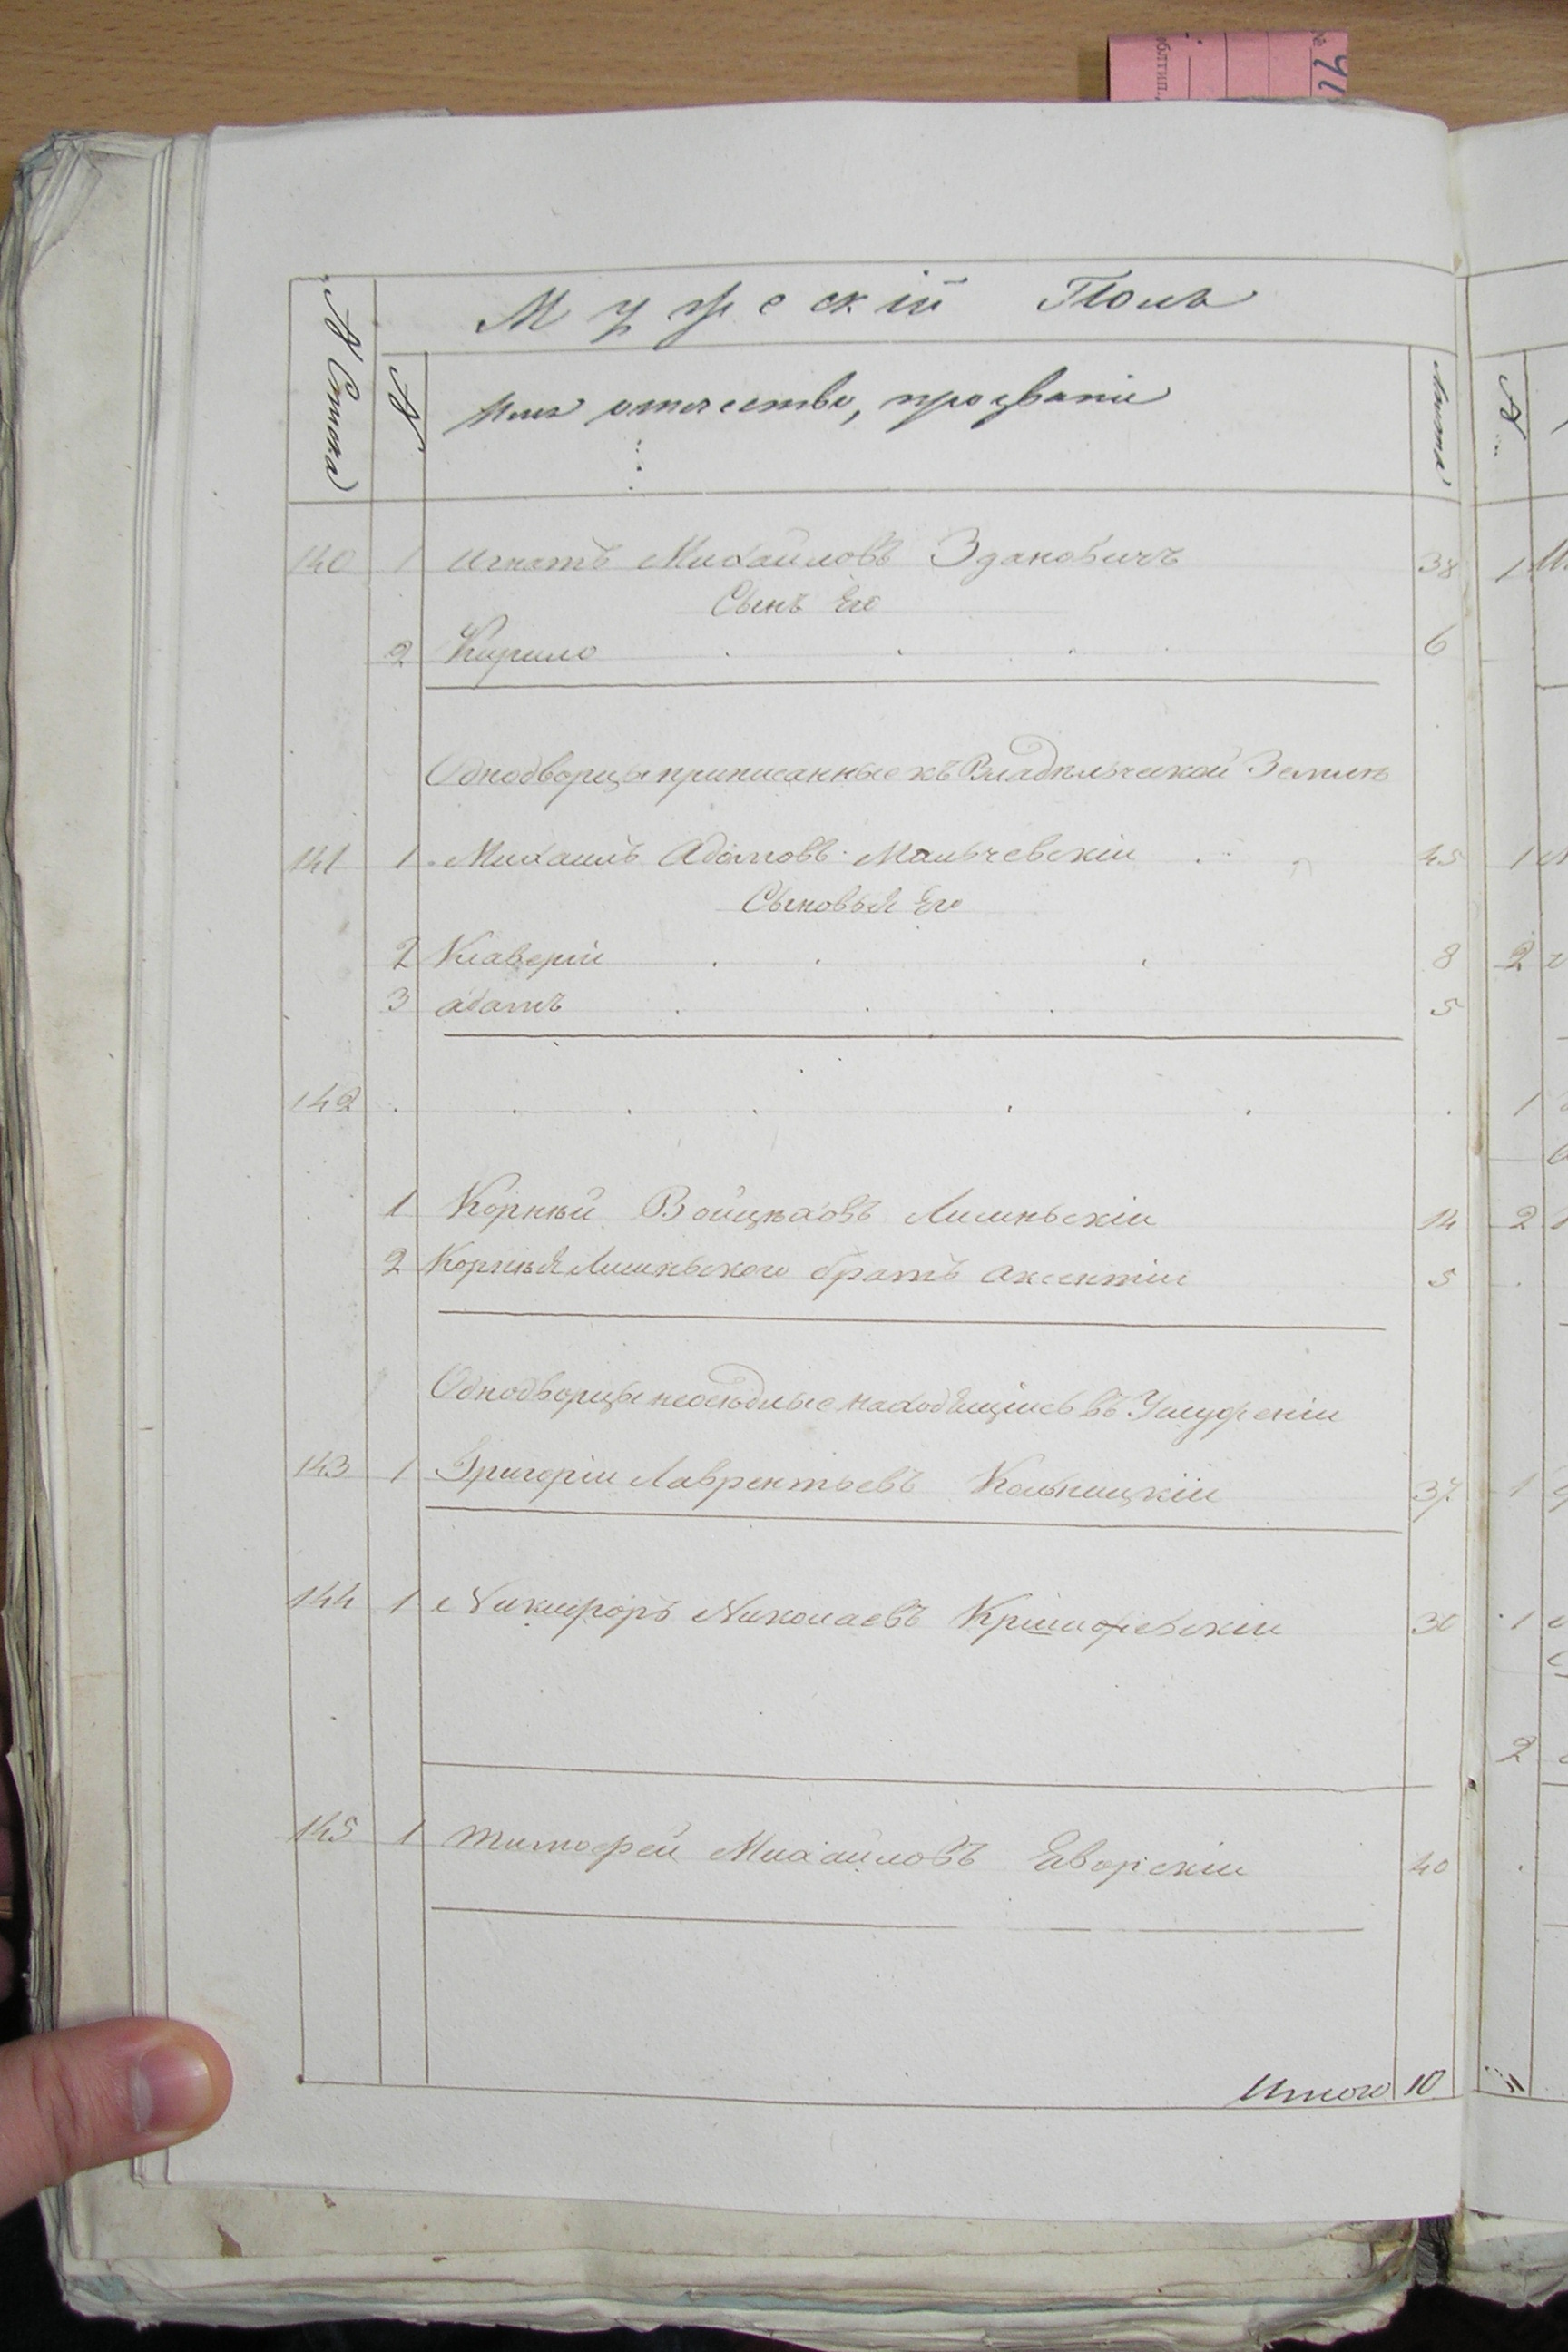 Мужескій Полъ
№ Списка
№
Имя отечество, прозваніе
Лѣта
140 1 Игнатъ Михайловъ Здановичъ 38
Сынъ Его
2 Кирило 6
Однодворцы приписанные къ Владѣльческой Землѣ
141 1 Михаилъ Адамовъ Мальчевскіи 45
Сыновья Его
2 Ксаверіи 8
3 адамъ 5
142
1 Корнѣй Войцѣховъ Лисинскіи 14
2 Корнѣя братъ Аксентіи 5
Однодворцы неосѣдлые находящіесь въ Услуженіи
143 1 Григоріи Лаврентьевъ Кольницкіи 37
144 1 Никифоръ Николаевъ 30
145 1 тимофей Михайловъ Яворскіи 40
Итого 10